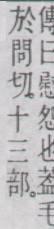 傳曰慰怨也葢毛
於問切。十三部。